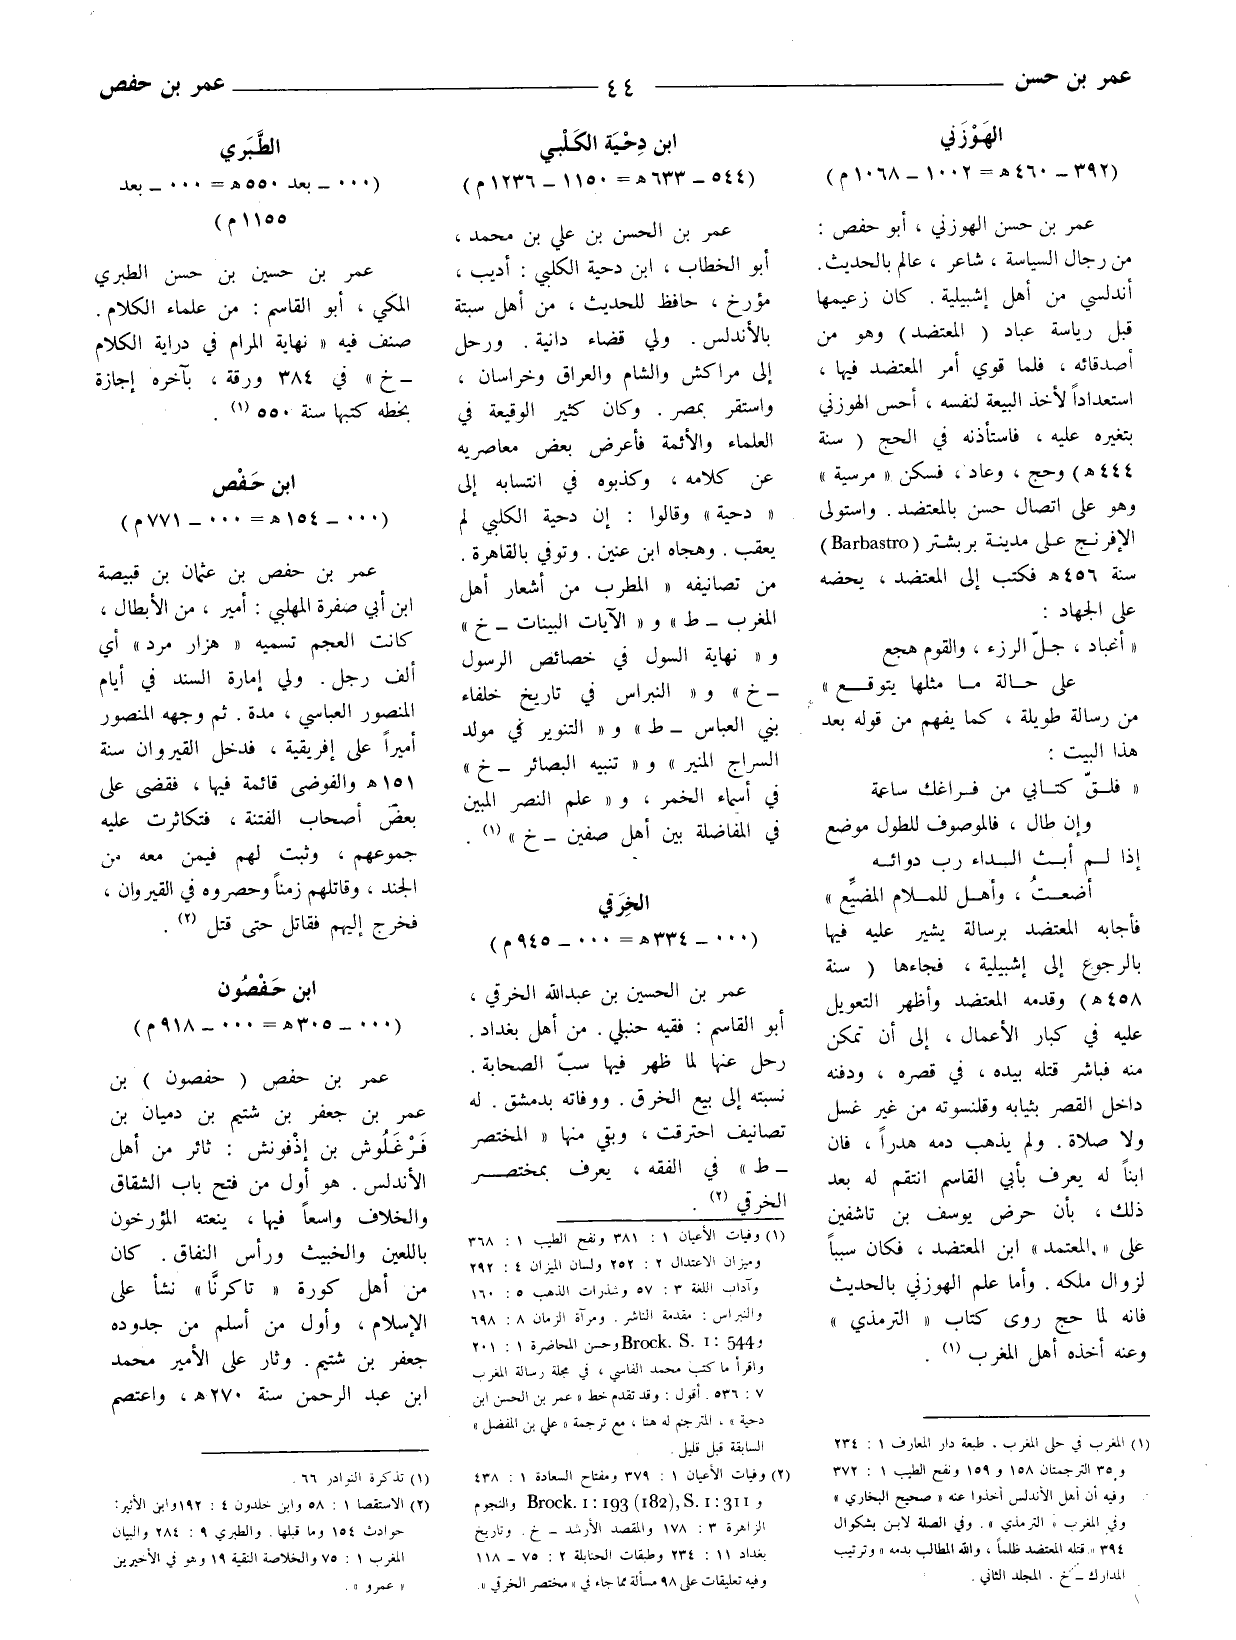 عمر بن حسن
٤٤
عمر بن حفص
الهَوْزَني
(٣٩٢ ــ ٤٦٠ هـ = ١٠٠٢ ــ ١٠٦٨ م)
عمر بن حسن الهوزني ، أبو حفص :
من رجال السياسة ، شاعر ، عالم بالحديث.
أندلسي من أهل إشبيلية . كان زعيمها
قبل رياسة عباد ( المعتضد ) وهو من
أصدقائه ، فلما قوي أمر المعتضد فيها ،
استعداداً لأخذ البيعة لنفسه ، أحس الهوزني
بتغيره عليه ، فاستأذنه في الحج ( سنة
٤٤٤ هـ ) وحج ، وعاد ، فسكن « مرسية »
وهو على اتصال حسن بالمعتضد . واستولى
الإفرنج على مدينة بربشتر (Barbastro)
سنة ٤٥٦ هـ فكتب إلى المعتضد ، يحضه
على الجهاد :
« أعباد ، جلّ الرزء ، والقوم هجع
على حالة ما مثلها يتوقع »
من رسالة طويلة ، كما يفهم من قوله بعد
هذا البيت :
« فلقّ كتابي من فراغك ساعة
وإن طال ، فالموصوف للطول موضع
إذا لم أبث الداء رب دوائه
أضعتُ ، وأهل للملام المضيِّع »
فأجابه المعتضد برسالة يشير عليه فيها
بالرجوع إلى إشبيلية ، فجاءها ( سنة
٤٥٨ هـ ) وقدمه المعتضد وأظهر التعويل
عليه في كبار الأعمال ، إلى أن تمكن
منه فباشر قتله بيده ، في قصره ، ودفنه
داخل القصر بثيابه وقلنسوته من غير غسل
ولا صلاة . ولم يذهب دمه هدراً ، فان
ابناً له يعرف بأبي القاسم انتقم له بعد
ذلك ، بأن حرض يوسف بن تاشفين
على « المعتمد » ابن المعتضد ، فكان سبباً
لزوال ملكه . وأما علم الهوزني بالحديث
فانه لما حج روى كتاب « الترمذي »
وعنه أخذه أهل المغرب (١) .
(١) المغرب في حلى المغرب . طبعة دار المعارف ١ : ٢٣٤
و ٣٥ الترجمتان ١٥٨ و ١٥٩ ونفح الطيب ١ : ٣٧٢
وفيه أن أهل الأندلس أخذوا عنه « صحيح البخاري »
وفي المغرب « الترمذي » . وفي الصلة لابن بشكوال
٣٩٤ « قتله المعتضد ظلماً ، والله المطالب بدمه » وترتيب
المدارك ــ خ . المجلد الثاني .
ابن دِحْيَة الكَلْبي
(٥٤٤ ــ ٦٣٣ هـ = ١١٥٠ ــ ١٢٣٦ م)
عمر بن الحسن بن علي بن محمد ،
أبو الخطاب ، ابن دحية الكلبي : أديب ،
مؤرخ ، حافظ للحديث ، من أهل سبتة
بالأندلس . ولي قضاء دانية . ورحل
إلى مراكش والشام والعراق وخراسان ،
واستقر بمصر . وكان كثير الوقيعة في
العلماء والأئمة فأعرض بعض معاصريه
عن كلامه ، وكذبوه في انتسابه إلى
« دحية » وقالوا : إن دحية الكلبي لم
يعقب . وهجاه ابن عنين . وتوفي بالقاهرة .
من تصانيفه « المطرب من أشعار أهل
المغرب ــ ط » و « الآيات البينات ــ خ »
و « نهاية السول في خصائص الرسول
ــ خ » و « النبراس في تاريخ خلفاء
بني العباس ــ ط » و « التنوير في مولد
السراج المنير » و « تنبيه البصائر ــ خ »
في أسماء الخمر ، و « علم النصر المبين
في المفاضلة بين أهل صفين ــ خ » (١) .
الخِرَقي
(٠٠٠ ــ ٣٣٤ هـ = ٠٠٠ ــ ٩٤٥ م)
عمر بن الحسين بن عبدالله الخرقي ،
أبو القاسم : فقيه حنبلي . من أهل بغداد .
رحل عنها لما ظهر فيها سبّ الصحابة .
نسبته إلى بيع الخرق . ووفاته بدمشق . له
تصانيف احترقت ، وبقي منها « المختصر
ــ ط » في الفقه ، يعرف بمختصر
الخرقي (٢) .
(١) وفيات الأعيان ١ : ٣٨١ ونفح الطيب ١ : ٣٦٨
وميزان الاعتدال ٢ : ٢٥٢ ولسان الميزان ٤ : ٢٩٢
وآداب اللغة ٣ : ٥٧ وشذرات الذهب ٥ : ١٦٠
والنبراس : مقدمة الناشر . ومرآة الزمان ٨ : ٦٩٨
و Brock. S. 1: 544 وحسن المحاضرة ١ : ٢٠١
واقرأ ما كتب محمد الفاسي ، في مجلة رسالة المغرب
٧ : ٥٣٦ . أقول : وقد تقدم خط « عمر بن الحسن ابن
دحية » ، المترجم له هنا ، مع ترجمة « علي بن المفضل »
السابقة قبل قليل .
(٢) وفيات الأعيان ١ : ٣٧٩ ومفتاح السعادة ١ : ٤٣٨
و Brock. 1: 193 (182), S. 1: 311 والنجوم
الزاهرة ٣ : ١٧٨ والمقصد الأرشد ــ خ . وتاريخ
بغداد ١١ : ٢٣٤ وطبقات الحنابلة ٢ : ٧٥ ــ ١١٨
وفيه تعليقات على ٩٨ مسألة مما جاء في « مختصر الخرقي ».
الطَّبَري
(٠٠٠ ــ بعد ٥٥٠ هـ = ٠٠٠ ــ بعد
١١٥٥ م)
عمر بن حسين بن حسن الطبري
المكي ، أبو القاسم : من علماء الكلام .
صنف فيه « نهاية المرام في دراية الكلام
ــ خ » في ٣٨٤ ورقة ، بآخره إجازة
بخطه كتبها سنة ٥٥٠ (١) .
ابن حَفْص
(٠٠٠ ــ ١٥٤ هـ = ٠٠٠ ــ ٧٧١ م)
عمر بن حفص بن عثمان بن قبيصة
ابن أبي صفرة المهلبي : أمير ، من الأبطال ،
كانت العجم تسميه « هزار مرد » أي
ألف رجل . ولي إمارة السند في أيام
المنصور العباسي ، مدة . ثم وجهه المنصور
أميراً على إفريقية ، فدخل القيروان سنة
١٥١ هـ والفوضى قائمة فيها ، فقضى على
بعض أصحاب الفتنة ، فتكاثرت عليه
جموعهم ، وثبت لهم فيمن معه من
الجند ، وقاتلهم زمناً وحصروه في القيروان ،
فخرج إليهم فقاتل حتى قتل (٢) .
ابن حَفْصُون
(٠٠٠ ــ ٣٠٥ هـ = ٠٠٠ ــ ٩١٨ م)
عمر بن حفص ( حفصون ) بن
عمر بن جعفر بن شتيم بن دميان بن
فَرْغَلُوش بن إذْفونش : ثائر من أهل
الأندلس . هو أول من فتح باب الشقاق
والخلاف واسعاً فيها ، ينعته المؤرخون
باللعين والخبيث ورأس النفاق . كان
من أهل كورة « تاكرنَّا » نشأ على
الإسلام ، وأول من أسلم من جدوده
جعفر بن شتيم . وثار على الأمير محمد
ابن عبد الرحمن سنة ٢٧٠ هـ ، واعتصم
(١) تذكرة النوادر ٦٦ .
(٢) الاستقصا ١ : ٥٨ وابن خلدون ٤ : ١٩٢ وابن الأثير :
حوادث ١٥٤ وما قبلها . والطبري ٩ : ٢٨٤ والبيان
المغرب ١ : ٧٥ والخلاصة النقية ١٩ وهو في الأخيرين
« عمرو » .